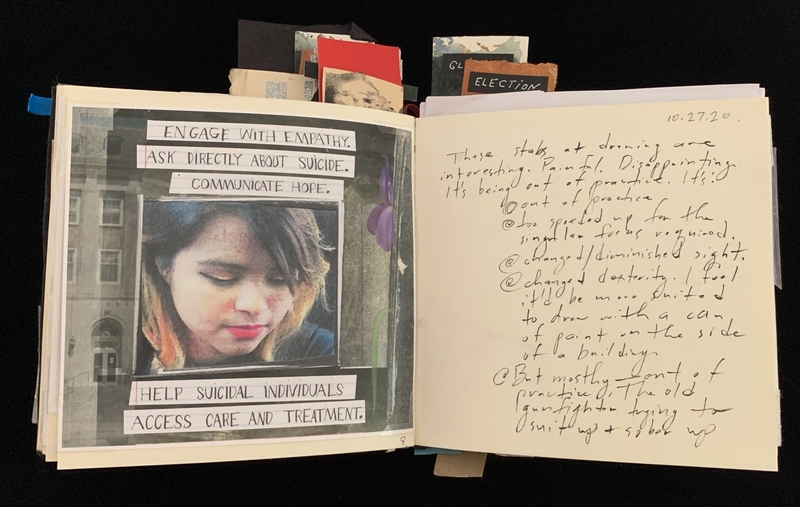 GL
ELECTION
ENGAGE WITH EMPATHY.
ASK DIRECTLY ABOUT SUICIDE.
COMMUNICATE HOPE.
HELP SUICIDAL INDIVIDUALS
ACCESS CARE AND TREATMENT.
8
10.27.20.
These stabs at drawing are
interesting. Painful. Disappointing.
It's being out of practice. It's:
out of practice
@ too speeded up for the
singular focus required.
@ changed/diminished sight.
@ changed dexterity. I feel
it'd be more suited
to draw with a can
of paint on the side
of a building.
@ But mostly—out of
practice, the old
gunfighter trying to
suit up + sober up